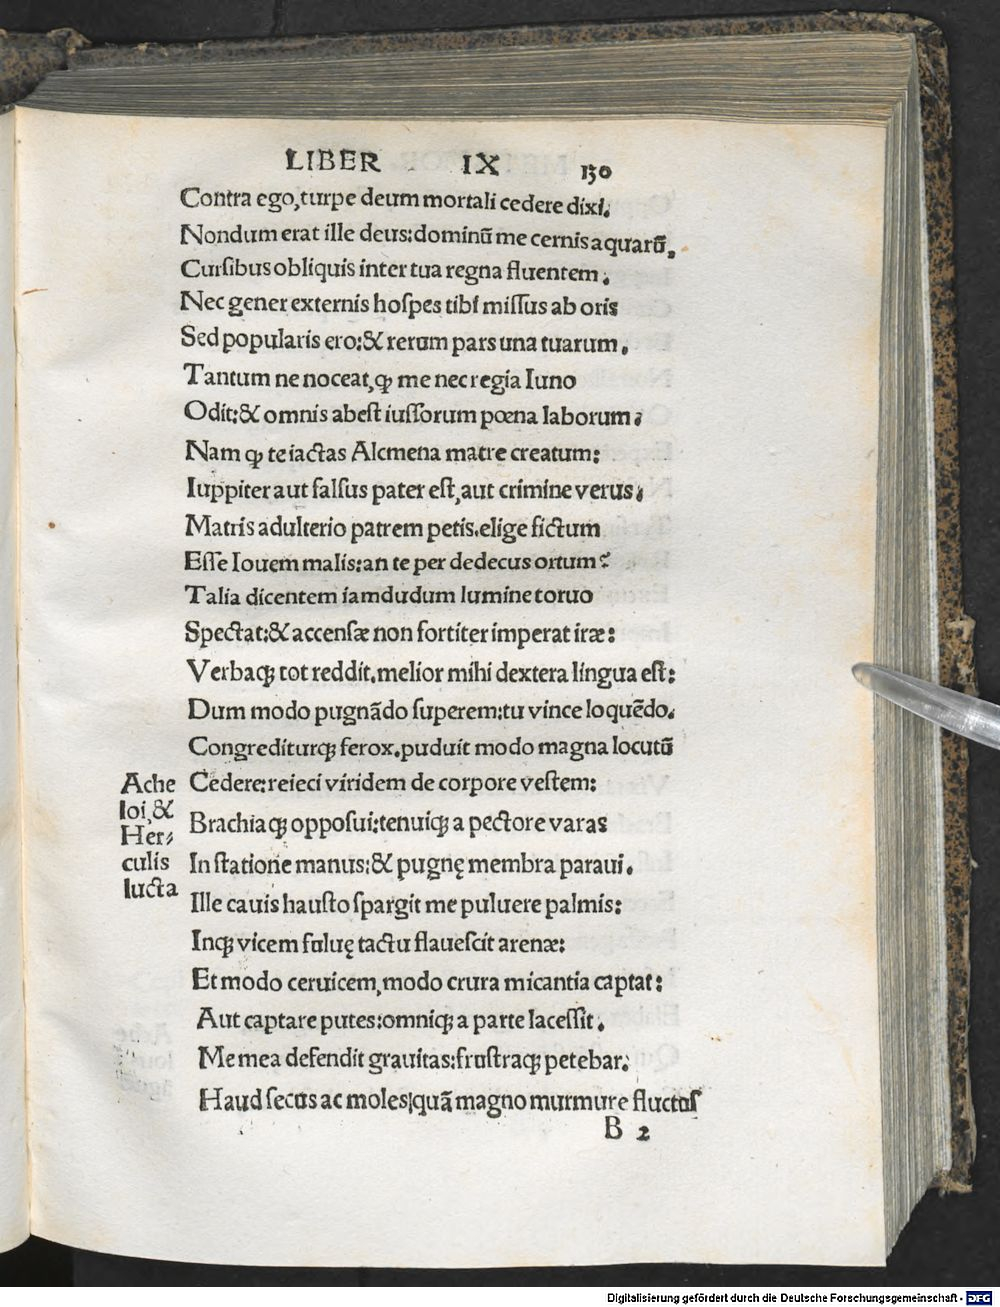 LIBER IX 130
Contra ego,turpe deum mortali cedere dixi.
Nondum erat ille deus:dominũ me cernis aquarũ.
Cursibus obliquis inter tua regna fluentem.
Nec gener externis hospes tibi missus ab oris
Sed popularis ero:& rerum pars una tuarum.
Tantum ne noceat,ꝙ me nec regia Iuno
Odit:& omnis abest iussorum pœna laborum.
Nam ꝙ te iactas Alcmena matre creatum:
Iuppiter aut falsus pater est,aut crimine verus.
Matris adulterio patrem petis.elige fictum
Esse Iouem malis:an te per dedecus ortum?
Talia dicentem iamdudum lumine toruo
Spectat:& accensæ non fortiter imperat iræ:
Verbaqꝫ tot reddit.melior mihi dextera lingua est:
Dum modo pugnãdo superem:tu vince loquẽdo.
Congrediturqꝫ ferox.puduit modo magna locutũ
Cedere:reieci viridem de corpore vestem:
Brachiaqꝫ opposui:tenuiqꝫ a pectore varas
In statione manus:& pugnę membra paraui.
Ille cauis hausto spargit me puluere palmis:
Inqꝫ vicem fuluę tactu flauescit arenæ:
Et modo ceruicem,modo crura micantia captat:
Aut captare putes:omniqꝫ a parte lacessit.
Me mea defendit grauitas:frustraqꝫ petebar.
Haud secus ac moles,quã magno murmure fluctus
B 2
Ache
loi,&
Her-
culis
lucta
Digitalisierung gefördert durch die Deutsche Forschungsgemeinschaft - DFG